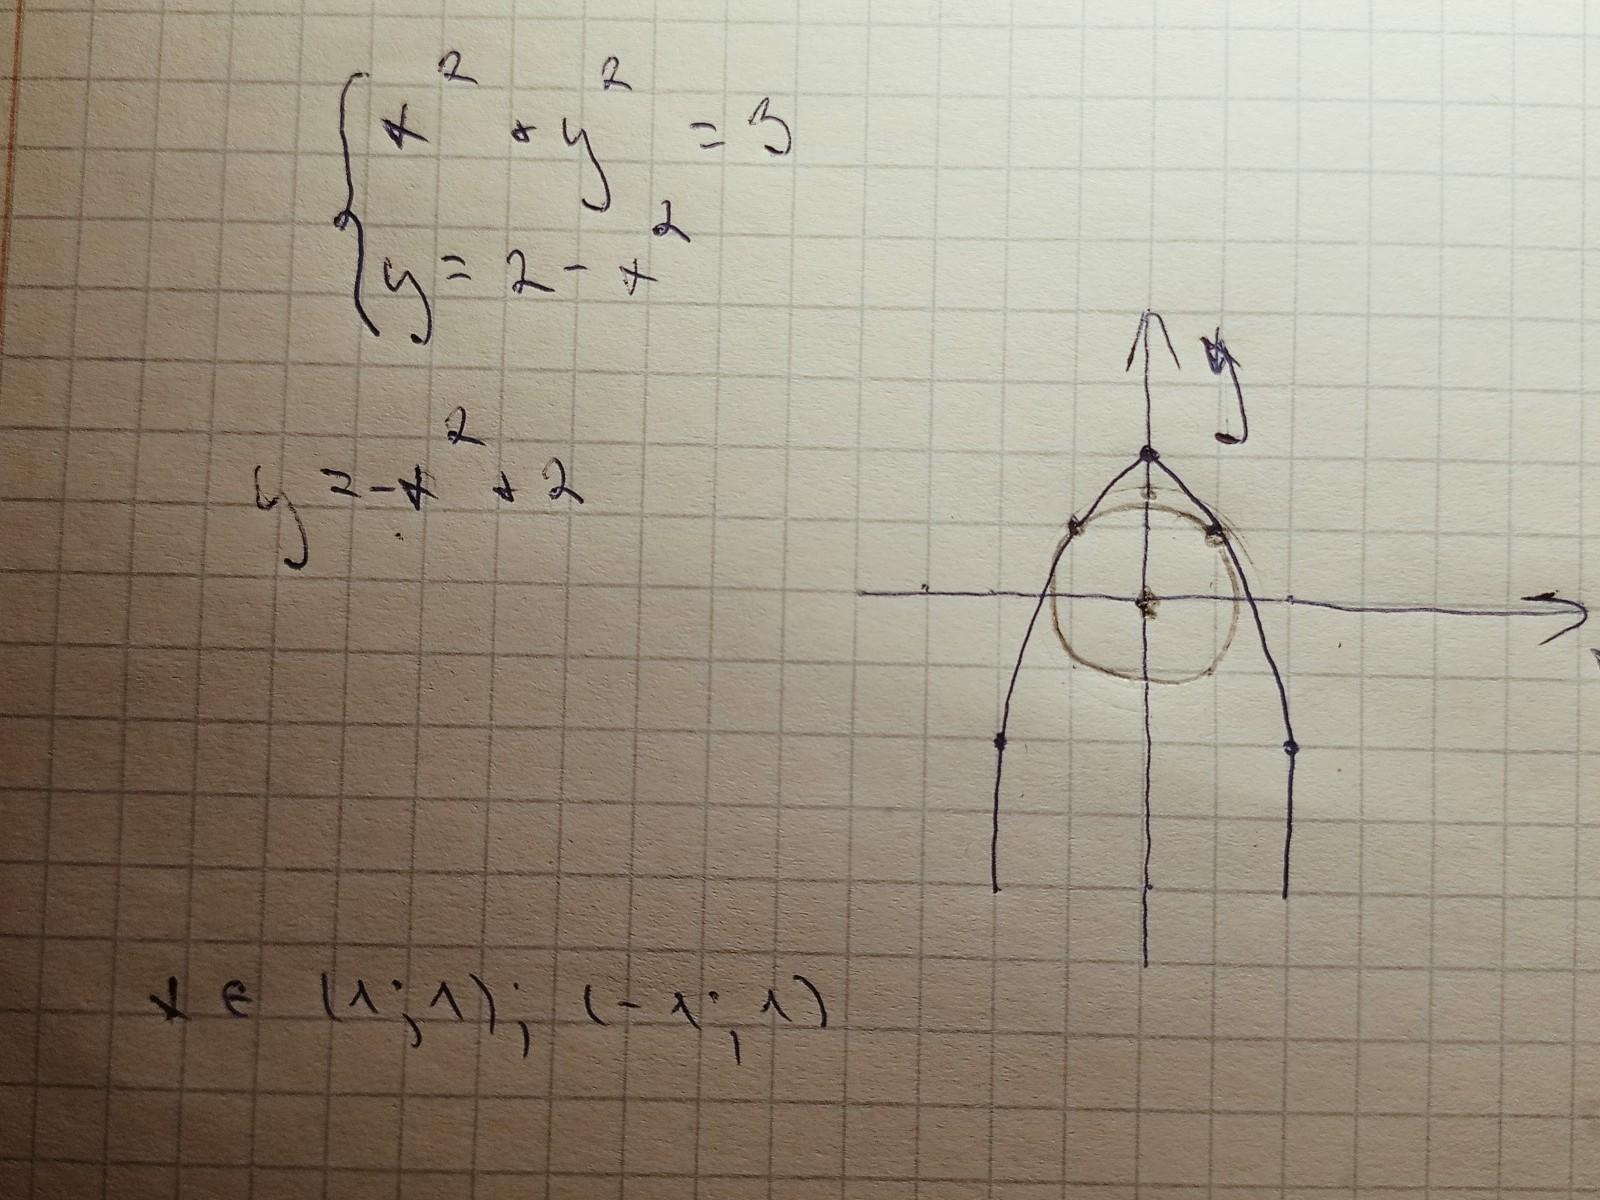 x² + y² = 3
y = 2 - x²
y = -x² + 2
y
x ∈ (1; 1); (-1; 1)